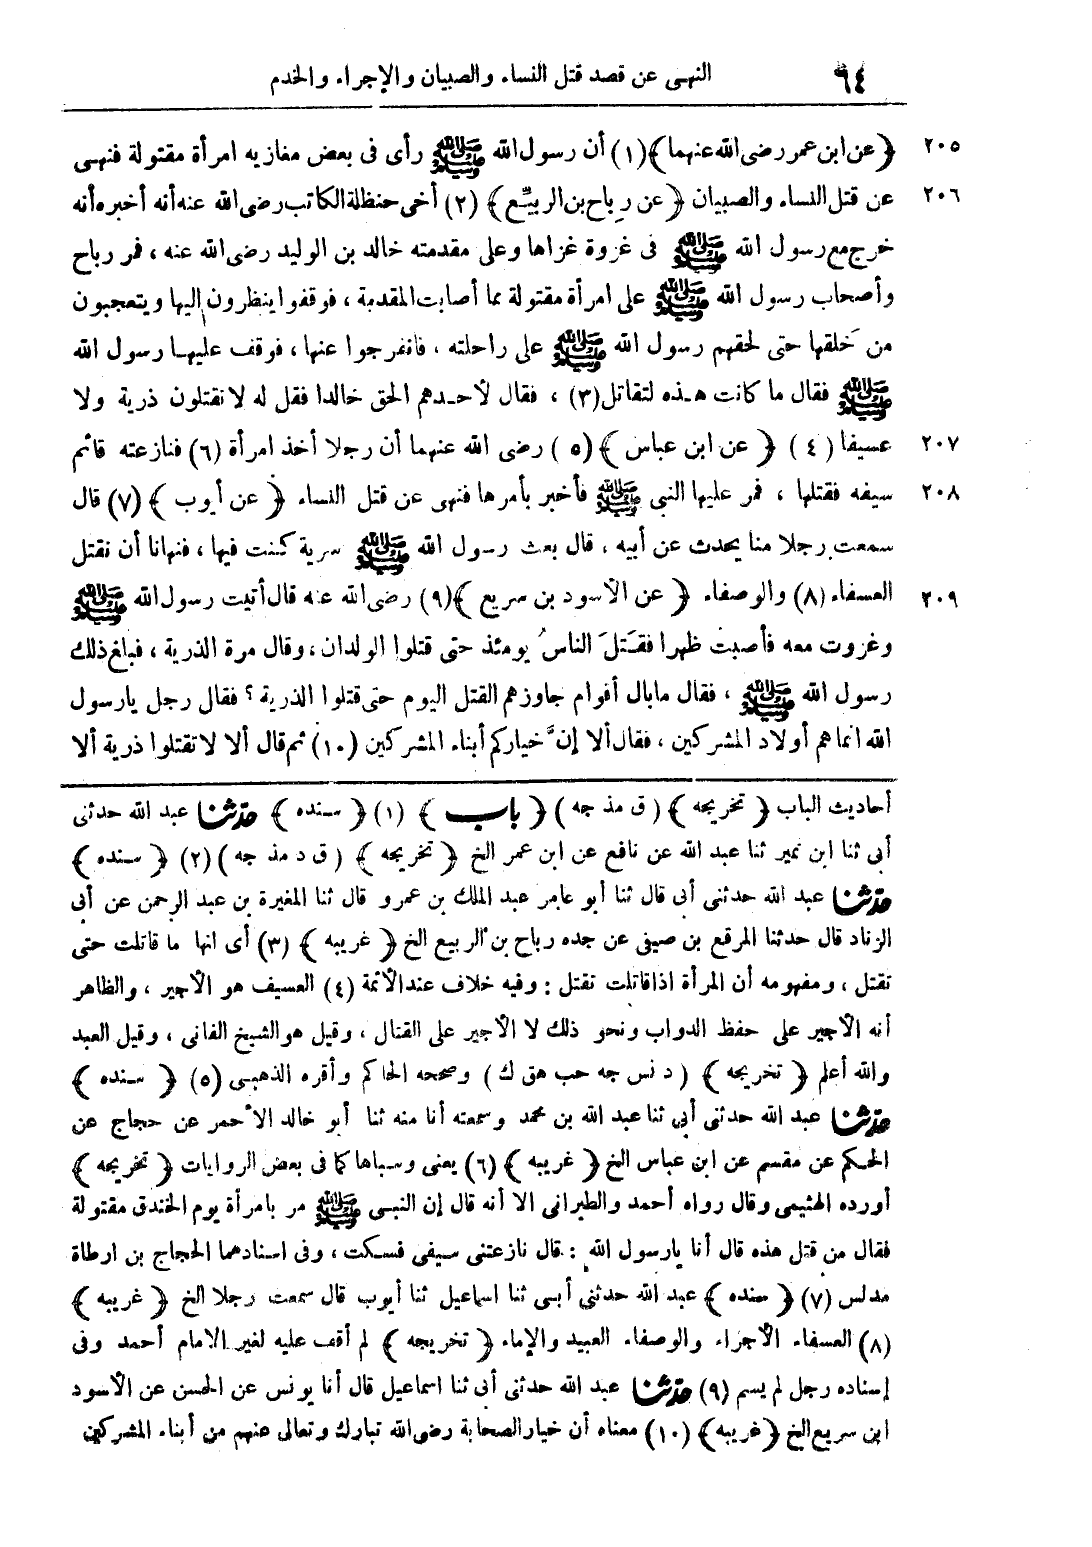 ٦٤ النهى عن قصد قتل النساء والصبيان والإجراء والخدم
٢٠٥ ﴿ عن ابن عمر رضى الله عنهما ﴾(١) أن رسول الله ﷺ رأى فى بعض مغازيه امرأة مقتولة فنهى
٢٠٦ عن قتل النساء والصبيان ﴿ عن رِباح بن الربيِّع ﴾ (٢) أخى حنظلة الكاتب رضى الله عنه أنه أخبره أنه
خرج مع رسول الله ﷺ فى غزوة غزاها وعلى مقدمته خالد بن الوليد رضى الله عنه ، فمر رباح
وأصحاب رسول الله ﷺ على امرأة مقتولة مما أصابت المقدمة ، فوقفوا ينظرون إليها ويتعجبون
من خَلقها حتى لحقهم رسول الله ﷺ على راحلته ، فانفرجوا عنها ، فوقف عليها رسول الله
ﷺ فقال ما كانت هذه لتقاتل (٣) ، فقال لأحدهم الحق خالدا فقل له لا تقتلون ذرية ولا
٢٠٧ عسيفا ( ٤ ) ﴿ عن ابن عباس ﴾ (٥ ) رضى الله عنهما أن رجلا أخذ امرأة (٦) فنازعته قائم
٢٠٨ سيفه فقتلها ، فمر عليها النبي ﷺ فأخبر بأمرها فنهى عن قتل النساء ﴿ عن أيوب ﴾ (٧) قال
سمعت رجلا منا يحدث عن أبيه ، قال بعث رسول الله ﷺ سرية كنت فيها ، فنهانا أن نقتل
٢٠٩ العسفاء (٨) والوصفاء ﴿ عن الأسود بن سريع ﴾(٩) رضى الله عنه قال أتيت رسول الله ﷺ
وغزوت معه فأصبت ظهرا فقَتلَ الناسُ يومئذ حتى قتلوا الولدان ، وقال مرة الذرية ، فبلغ ذلك
رسول الله ﷺ ، فقال ما بال أقوام جاوزهم القتل اليوم حتى قتلوا الذرية ؟ فقال رجل يا رسول
الله انما هم أولاد المشركين ، فقال ألا إنَّ خياركم أبناء المشركين (١٠) ثم قال ألا لا تقتلوا ذرية ألا
أحاديث الباب ﴿ تخريجه ﴾ ( ق مذ جه ) ﴿ باب ﴾ (١) ﴿ سنده ﴾ حدثنا عبد الله حدثنى
أبى ثنا ابن نمير ثنا عبد الله عن نافع عن ابن عمر الخ ﴿ تخريجه ﴾ ( ق د مذ جه ) (٢) ﴿ سنده ﴾
حدثنا عبد الله حدثنى أبى قال ثنا أبو عامر عبد الملك بن عمرو قال ثنا المغيرة بن عبد الرحمن عن أبى
الزناد قال حدثنا المرقع بن صيفى عن جده رباح بن الربيع الخ ﴿ غريبه ﴾ (٣) أى انها ما قاتلت حتى
تقتل ، ومفهومه أن المرأة اذا قاتلت تقتل : وفيه خلاف عند الأئمة (٤) العسيف هو الأجير ، والظاهر
أنه الأجير على حفظ الدواب ونحو ذلك لا الأجير على القتال ، وقيل هو الشيخ الفانى ، وقيل العبد
والله أعلم ﴿ تخريجه ﴾ ( د نس جه حب هق ك ) وصححه الحاكم وأقره الذهبى (٥) ﴿ سنده ﴾
حدثنا عبد الله حدثنى أبي ثنا عبد الله بن محمد وسمعته أنا منه ثنا أبو خالد الأحمر عن حجاج عن
الحكم عن مقسم عن ابن عباس الخ ﴿ غريبه ﴾ (٦) يعنى وسباها كما فى بعض الروايات ﴿ تخريجه ﴾
أورده الهثيمى وقال رواه أحمد والطبرانى الا أنه قال إن النبى ﷺ مر بامرأة يوم الخندق مقتولة
فقال من قتل هذه قال أنا يارسول الله : قال نازعتنى سيفى فسكت ، وفى اسنادهما الحجاج بن ارطاة
مدلس (٧) ﴿ سنده ﴾ عبد الله حدثني أبى ثنا اسماعيل ثنا أيوب قال سمعت رجلا الخ ﴿ غريبه ﴾
(٨) العسفاء الأجراء والوصفاء العبيد والإماء ﴿ تخريجه ﴾ لم أقف عليه لغير الامام أحمد وفى
إسناده رجل لم يسم (٩) حدثنا عبد الله حدثنى أبى ثنا اسماعيل قال أنا يونس عن الحسن عن الأسود
ابن سريع الخ ﴿ غريبه ﴾ (١٠) معناه أن خيار الصحابة رضى الله تبارك وتعالى عنهم من أبناء المشركين